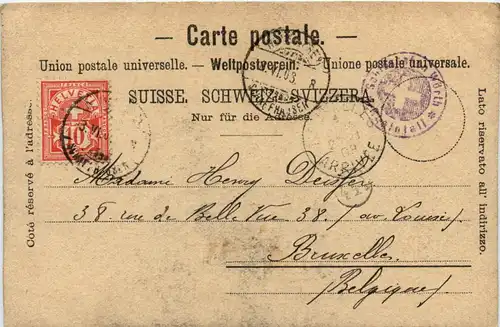 — Carte postale. —
Union postale universelle. — Weltpostverein. — Unione postale universale.
SUISSE. SCHWEIZ. SVIZZERA.
Nur für die Adresse.
Côté réservé à l'adresse.
Lato riservato all' indirizzo.
HELVETIA
10
SCHAFFHAUSEN
Madame Henry
38 rue de Belle Vue 38 / av. Louise/
Bruxelles
(Belgique)